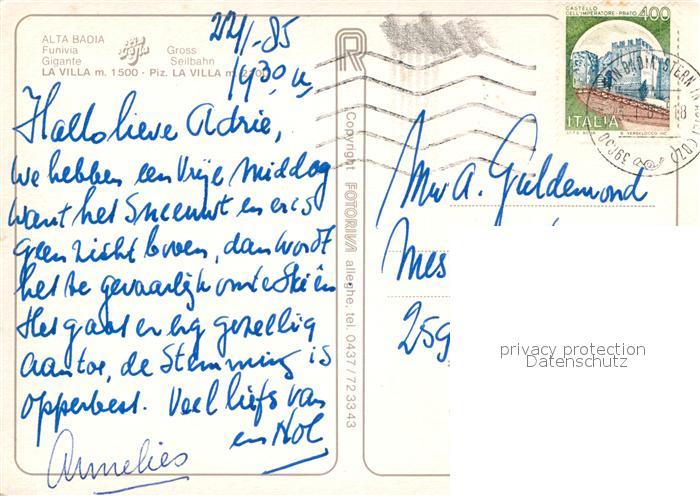 ALTA BADIA
Funivia Gross
Gigante Seilbahn
LA VILLA m. 1500 - Piz. LA VILLA m.
22/1-85
1930 u
Hallo lieve Adrie,
we hebben een vrije middag
want het sneeuwt en er is
geen zicht boven, dan wordt
het te gevaarlijk om te Skiën
Het gaat erg gezellig
aan toe, de Stemming is
opperbest. Veel liefs van
en Nol
Annelies
Copyright FOTORIVA alleghe, tel. 0437/723343
CASTELLO
DELL'IMPERATORE - PRATO 400
ITALIA
BADIA
39030
Mw A. Guldemond
Mes
259
privacy protection
Datenschutz